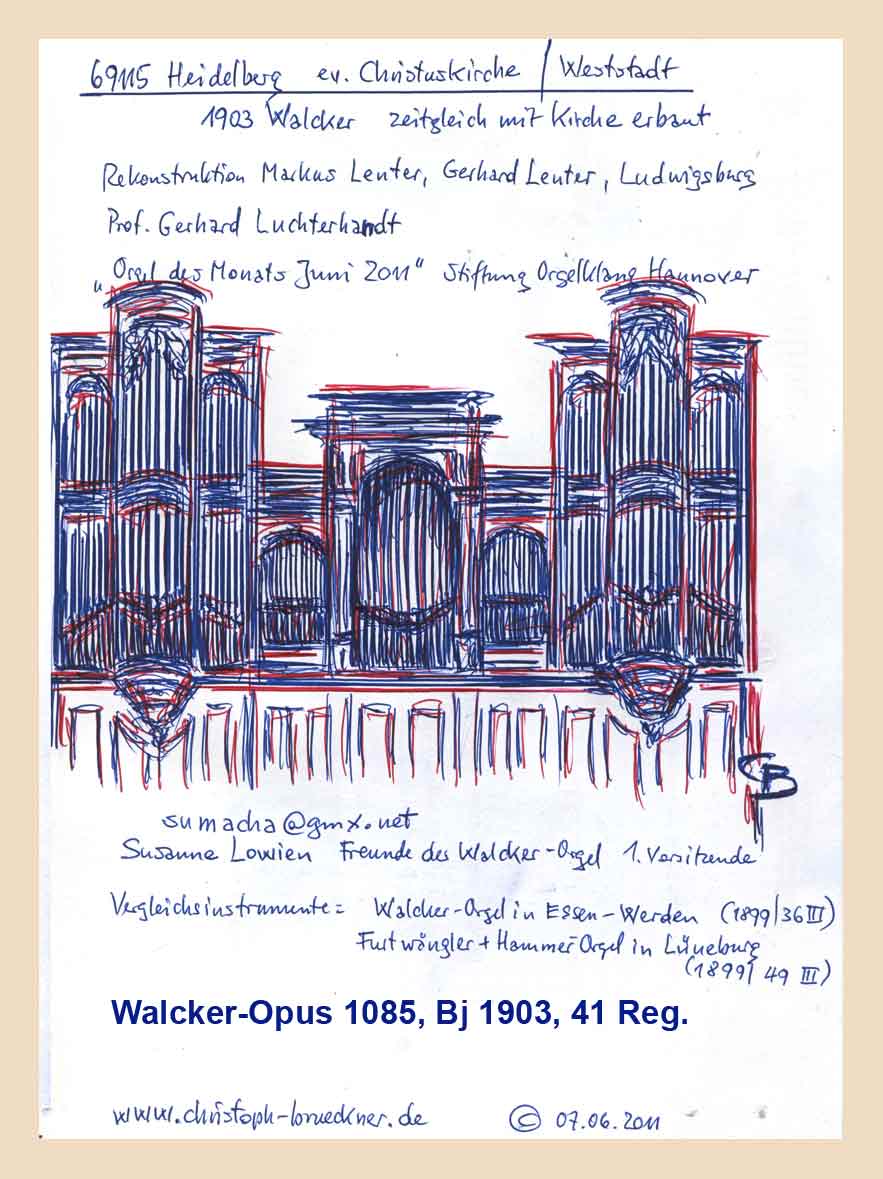 69115 Heidelberg ev. Christuskirche / Weststadt
1903 Walcker zeitgleich mit Kirche erbaut
Rekonstruktion Markus Lenter, Gerhard Lenter, Ludwigsburg
Prof. Gerhard Luchterhandt
„Orgel des Monats Juni 2011“ Stiftung Orgelklang Hannover
CB
sumacha@gmx.net
Susanne Lowien Freunde des Walcker-Orgel 1. Vorsitzende
Vergleichsinstrumente= Walcker-Orgel in Essen-Werden (1899/36 III)
Furtwängler + Hammer Orgel in Lüneburg
(1899/ 49 III)
Walcker-Opus 1085, Bj 1903, 41 Reg.
www.christoph-brueckner.de © 07.06.2011